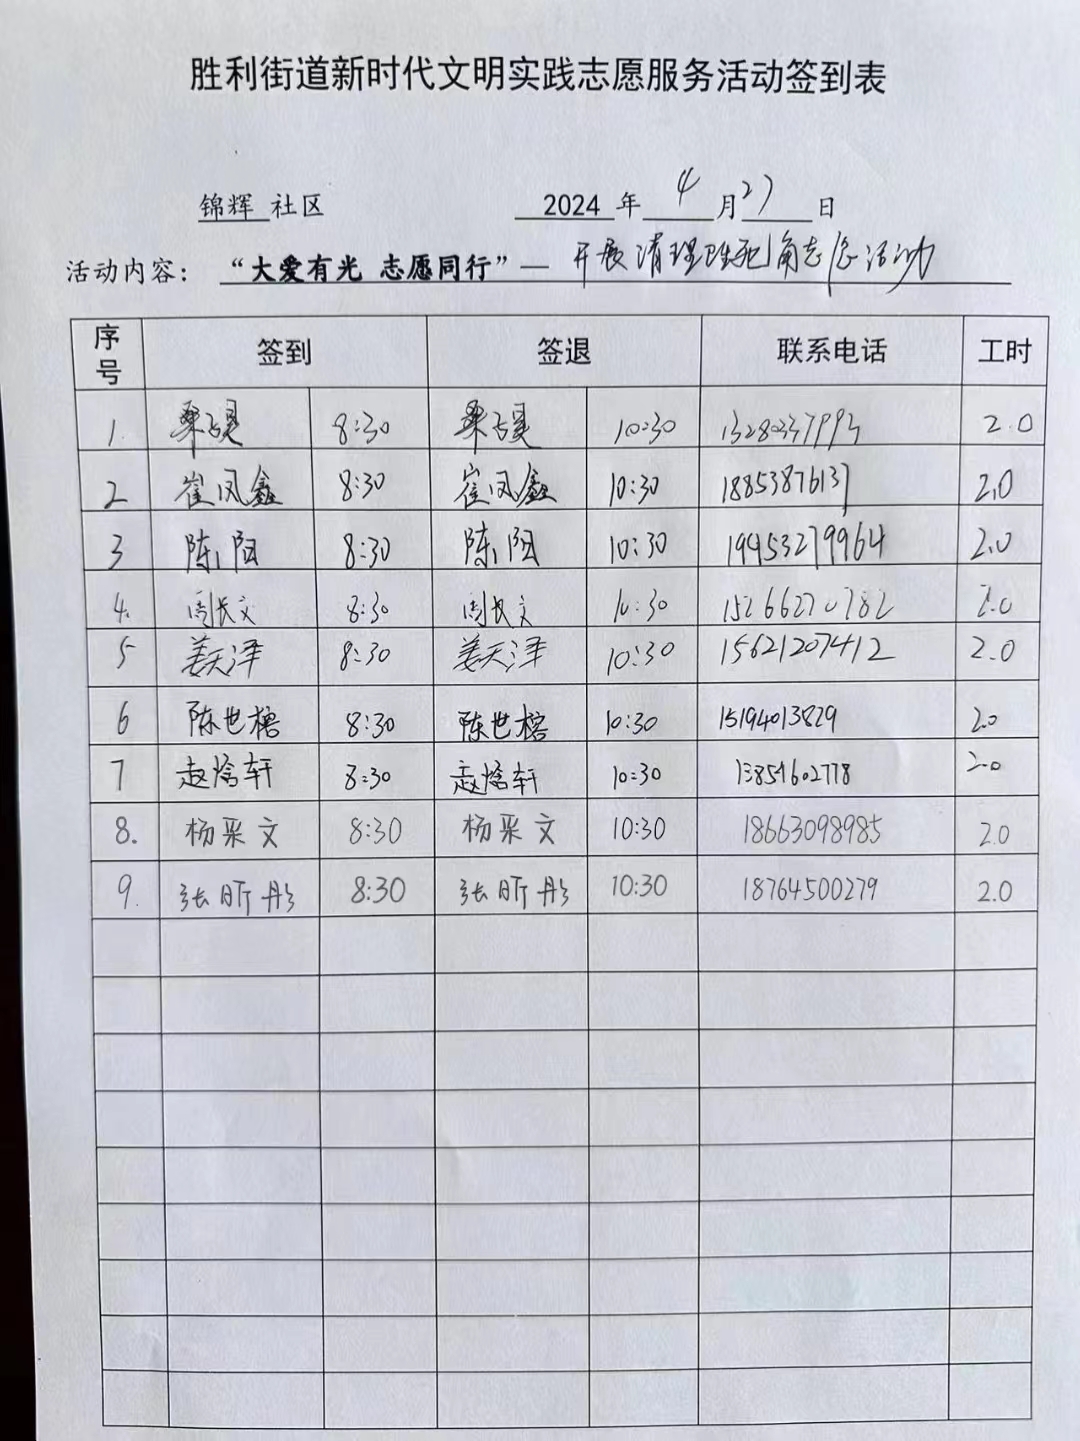 胜利街道新时代文明实践志愿服务活动签到表
锦辉 社区 2024 年 4 月 27 日
活动内容： “大爱有光 志愿同行”— 开展清理 角志愿活动
序号 签到 签退 联系电话 工时
1. 8:30 10:30 2.0
2 崔凤鑫 8:30 崔凤鑫 10:30 18853876137 2.0
3 陈阳 8:30 陈阳 10:30 19453279964 2.0
4. 周长文 8:30 周长文 10:30 15266270782 2.0
5 姜天泽 8:30 姜天泽 10:30 15621207412 2.0
6 陈世榕 8:30 陈世榕 10:30 15194013829 2.0
7 赵焓轩 8:30 赵焓轩 10:30 13854602778 2.0
8. 杨采文 8:30 杨采文 10:30 18663098985 2.0
9. 张昕彤 8:30 张昕彤 10:30 18764500279 2.0